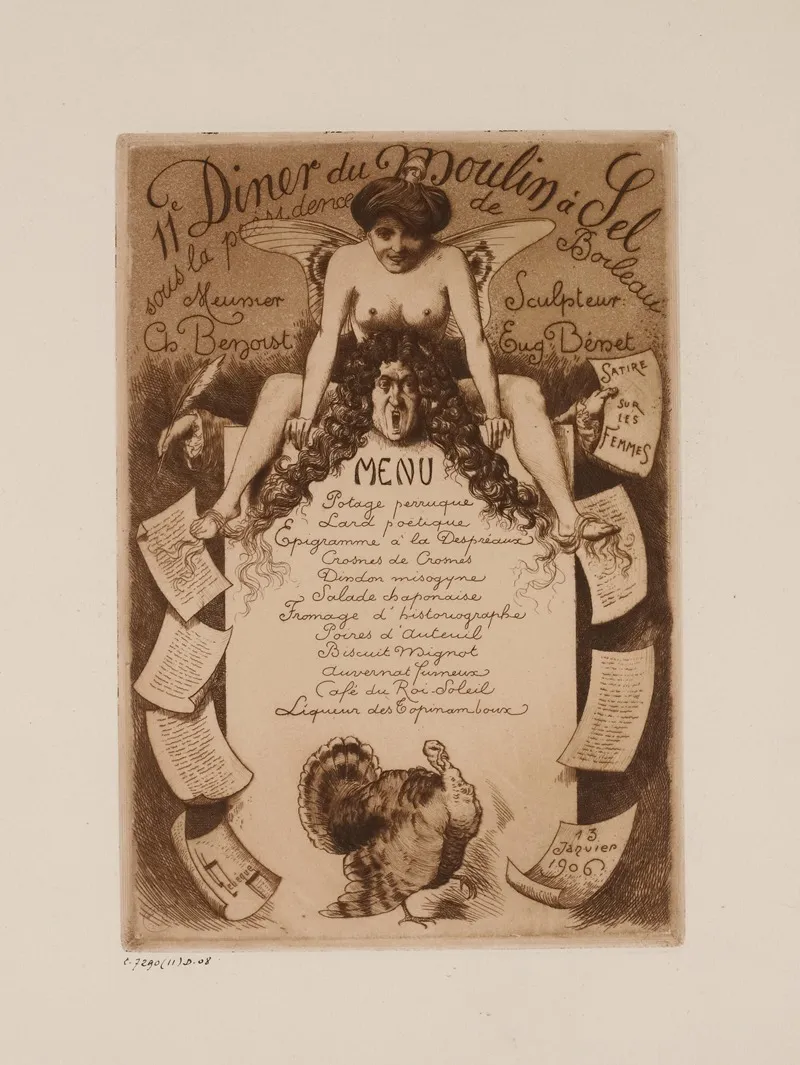 11e Diner du Moulin à Sel
sous la présidence de Boileau
Meunier
Ch Benoist
Sculpteur:
Eug Bénet
SATIRE
SUR
LES
FEMMES
MENU
Potage perruque
Lard poëtique
Epigramme à la Despréaux
Crosnes de Crosnes
Dindon misogyne
Salade chaponaise
Fromage d'historiographe
Poires d'Auteuil
Biscuit Mignot
Auvernat fumeux
Café du Roi-Soleil
Liqueur des Topinamboux
13
Janvier
1906
C.7290(11)D.08